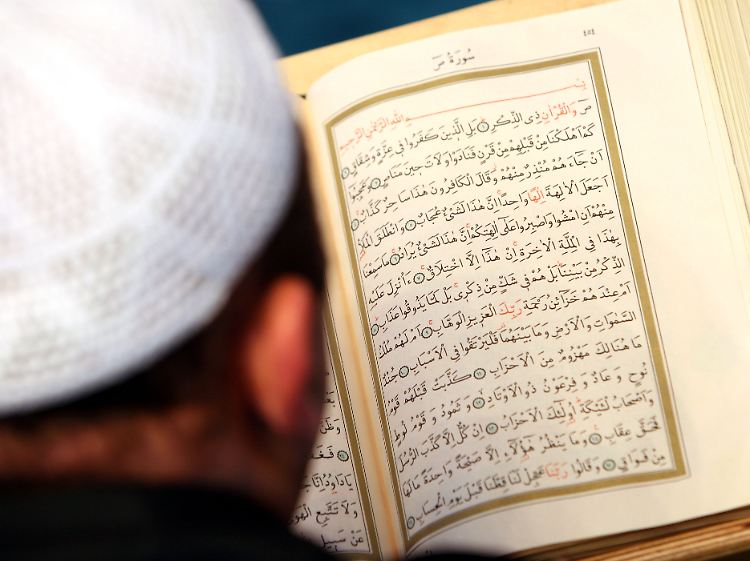 سُورَةُ صٓ
بِسْمِ اللهِ الرَّحْمٰنِ الرَّحِيمِ
صٓ وَالْقُرْاٰنِ ذِى الذِّكْرِ ١ بَلِ الَّذِينَ كَفَرُوا فِى عِزَّةٍ وَشِقَاقٍ ٢
كَمْ اَهْلَكْنَا مِنْ قَبْلِهِمْ مِنْ قَرْنٍ فَنَادَوْا وَلَاتَ حِينَ مَنَاصٍ ٣ وَعَجِبُوا
اَنْ جَاءَهُمْ مُنْذِرٌ مِنْهُمْ وَقَالَ الْكَافِرُونَ هٰذَا سَاحِرٌ كَذَّابٌ ٤
اَجَعَلَ الْاٰلِهَةَ اِلٰهًا وَاحِدًا اِنَّ هٰذَا لَشَىْءٌ عُجَابٌ ٥ وَانْطَلَقَ الْمَلَأُ
مِنْهُمْ اَنِ امْشُوا وَاصْبِرُوا عَلٰى اٰلِهَتِكُمْ اِنَّ هٰذَا لَشَىْءٌ يُرَادُ ٦ مَا سَمِعْنَا
بِهٰذَا فِى الْمِلَّةِ الْاٰخِرَةِ اِنْ هٰذَا اِلَّا اخْتِلَاقٌ ٧ ءَاُنْزِلَ عَلَيْهِ
الذِّكْرُ مِنْ بَيْنِنَا بَلْ هُمْ فِى شَكٍّ مِنْ ذِكْرِى بَلْ لَمَّا يَذُوقُوا عَذَابِ ٨
اَمْ عِنْدَهُمْ خَزَائِنُ رَحْمَةِ رَبِّكَ الْعَزِيزِ الْوَهَّابِ ٩ اَمْ لَهُمْ مُلْكُ
السَّمٰوَاتِ وَالْاَرْضِ وَمَا بَيْنَهُمَا فَلْيَرْتَقُوا فِى الْاَسْبَابِ ١٠ جُنْدٌ
مَا هُنَالِكَ مَهْزُومٌ مِنَ الْاَحْزَابِ ١١ كَذَّبَتْ قَبْلَهُمْ قَوْمُ
نُوحٍ وَعَادٌ وَفِرْعَوْنُ ذُو الْاَوْتَادِ ١٢ وَثَمُودُ وَقَوْمُ لُوطٍ
وَاَصْحَابُ لْـَٔيْكَةِ اُولٰئِكَ الْاَحْزَابُ ١٣ اِنْ كُلٌّ اِلَّا كَذَّبَ الرُّسُلَ
فَحَقَّ عِقَابِ ١٤ وَمَا يَنْظُرُ هٰؤُلَاءِ اِلَّا صَيْحَةً وَاحِدَةً مَا لَهَا
مِنْ فَوَاقٍ ١٥ وَقَالُوا رَبَّنَا عَجِّلْ لَنَا قِطَّنَا قَبْلَ يَوْمِ الْحِسَابِ ١٦
وَظَنَّ
يَا دَاوُدُ اِنَّا
وَلَا تَتَّبِعِ الْهَوٰى
عَنْ سَبِيلِ